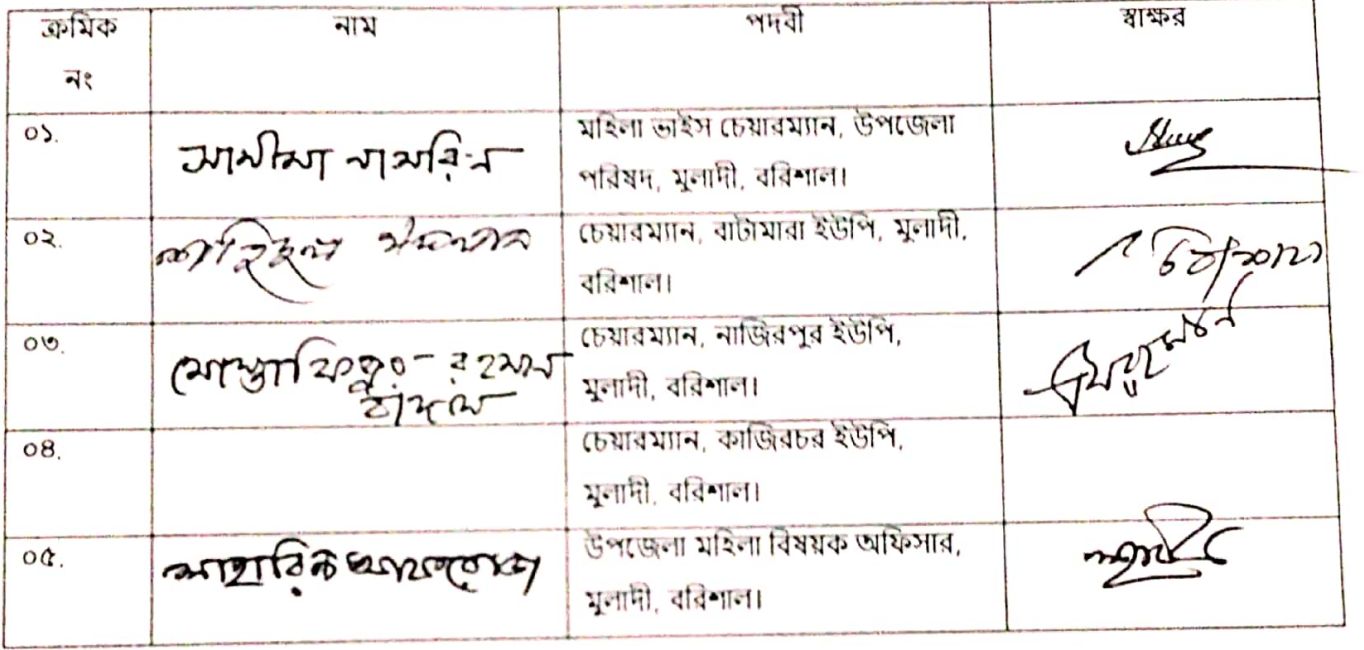 ক্রমিক নং নাম পদবী স্বাক্ষর
০১. সামীমা নাসরিন মহিলা ভাইস চেয়ারম্যান, উপজেলা
পরিষদ, মুলাদী, বরিশাল।
০২. চেয়ারম্যান, বাটামারা ইউপি, মুলাদী,
বরিশাল।
০৩. মোস্তাফিজুর রহমান চেয়ারম্যান, নাজিরপুর ইউপি,
মুলাদী, বরিশাল।
০৪. চেয়ারম্যান, কাজিরচর ইউপি,
মুলাদী, বরিশাল।
০৫. উপজেলা মহিলা বিষয়ক অফিসার,
মুলাদী, বরিশাল।